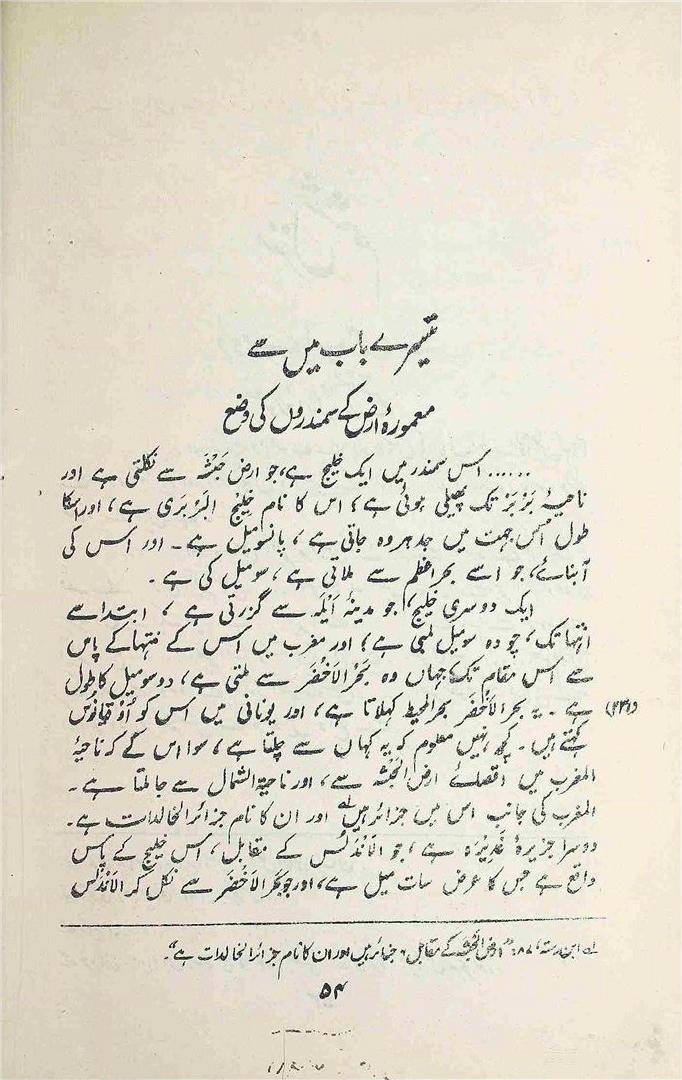 تیسرے باب میں سے
معمورۂ ارض کے سمندروں کی وضع
...... اس سمندر میں ایک خلیج ہے، جو ارض حَبْشَہ سے نکلتی ہے اور
ناحیۂ بَرْبَرْ تک پھیلی ہوئی ہے؛ اس کا نام خلیْج البَرْبَری ہے، اور اسکا
طول اس جہت میں جدھر وہ جاتی ہے، پانسو میل ہے۔ اور اس کی
آبنائے، جو اسے بحر اعظم سے ملاتی ہے، سو میل کی ہے۔
ایک دوسری خلیج، جو مدینۂ اَیْلَہ سے گزرتی ہے، ابتدا سے
انتہا تک، چودہ سو میل لمبی ہے؛ اور مغرب میں اس کے منتہا کے پاس
سے اس مقام تک، جہاں وہ بَحْرُ الاَخْضَر سے ملتی ہے، دو سو میل کا طول
ہے۔ یہ بحر الاَخْضَر بحر المحیط کہلاتا ہے، اور یونانی میں اس کو اُوْقیانُوْس
کہتے ہیں۔ کچھ نہیں معلوم کہ یہ کہاں سے چلتا ہے، سوا اس کے کہ ناحیۂ
المغرب میں اقصائے ارض الحَبْشہ سے، اور ناحیۃ الشمال سے جا ملتا ہے۔
المغرب کی جانب اس میں ۶ جزائر ہیں لہ اور ان کا نام جزائر الخالدات ہے۔
دوسرا جزیرہ غَدِیْرَہ ہے، جو الاَنْدَلُس کے مقابل، اس خلیج کے پاس
واقع ہے جس کا عرض سات میل ہے، اور جو بَحْرُ الاَخْضَر سے نکل کر الاَنْدَلُس
لہ ابن رستہ، ۸۷: "ارض الحَبْشہ کے مقابل ۶ جزائر ہیں اور ان کا نام جزائر الخالدات ہے"۔
۵۴